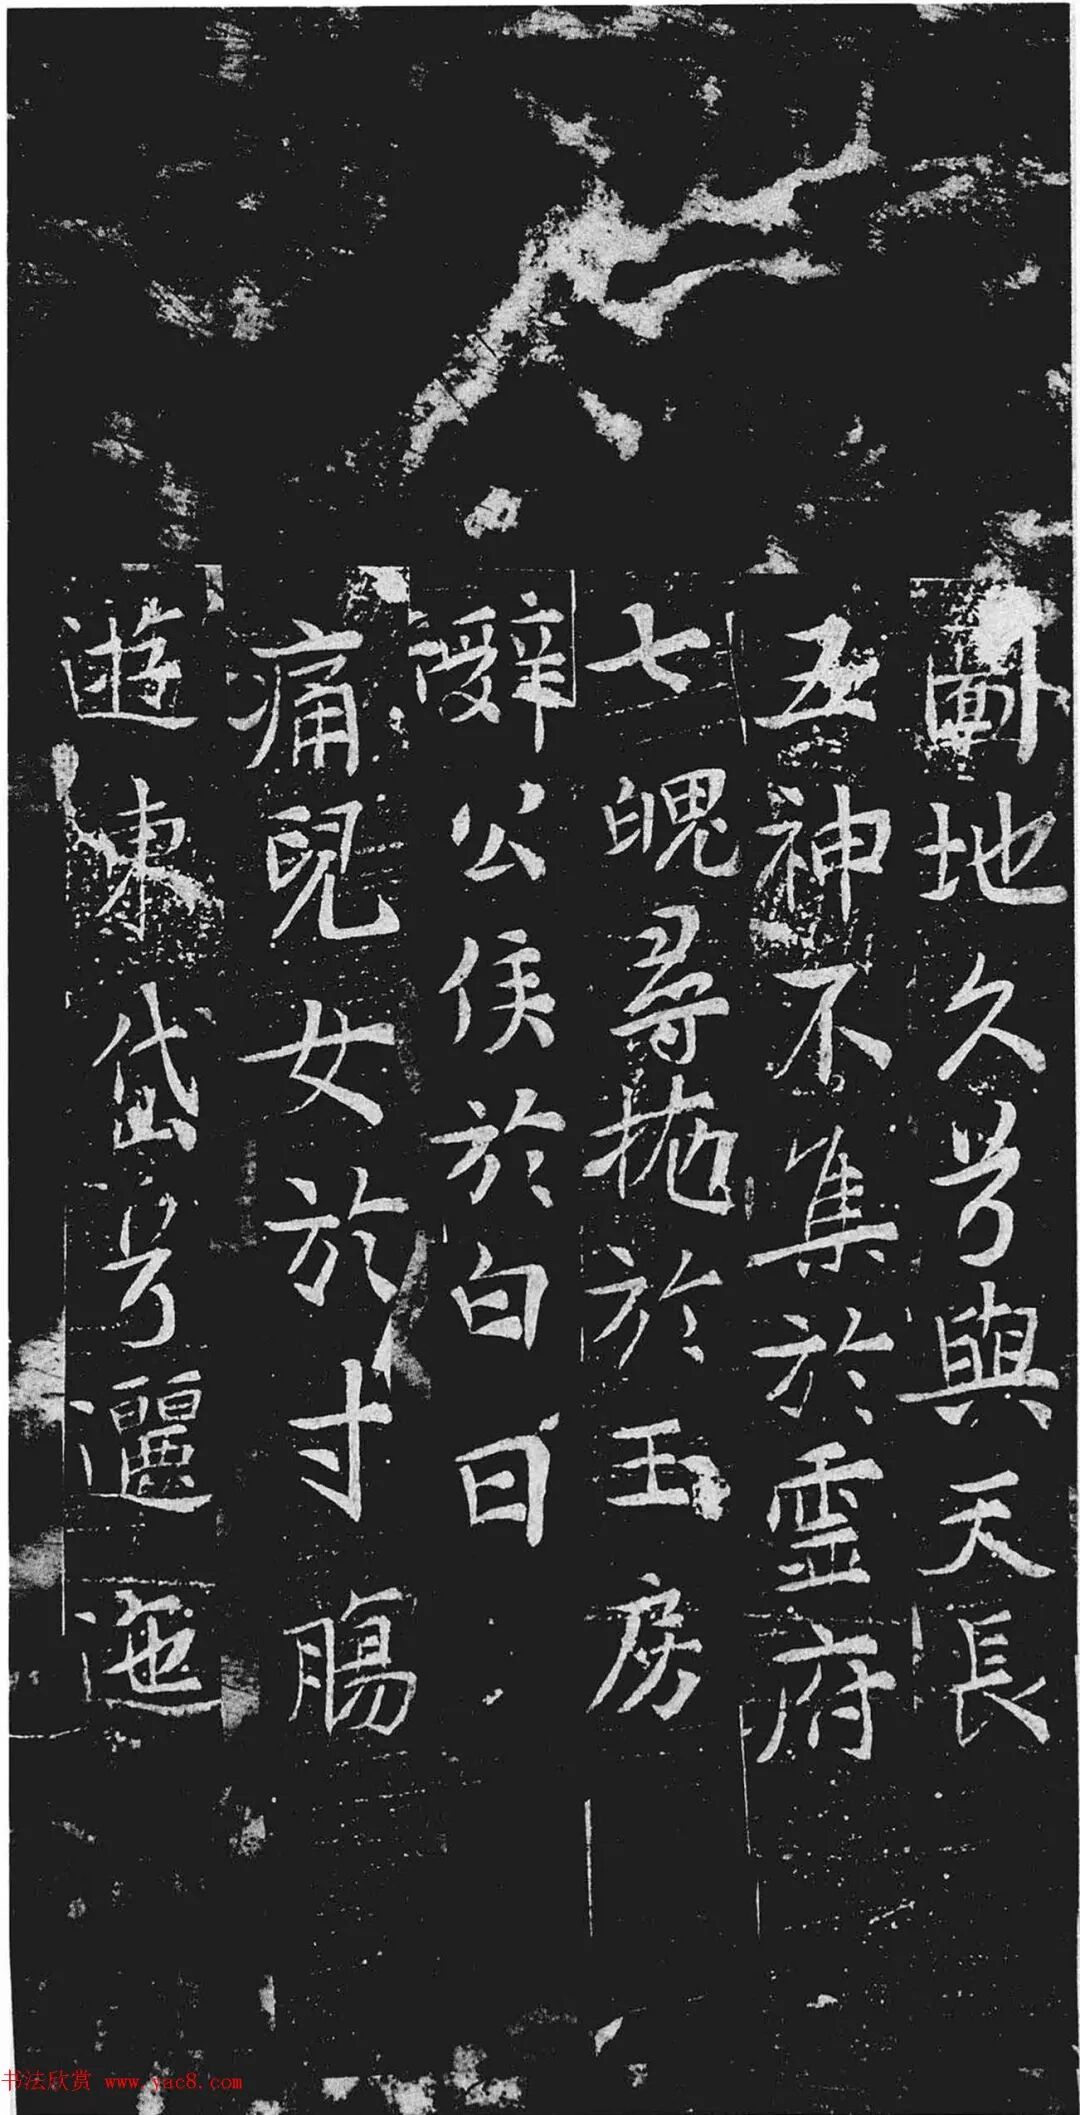 劃地久兮與天長
五神不集於靈府
七魄尋拋於玉房
辭公侯於白日
痛兒女於寸腸
遊東岱兮邐迤
书法欣赏 www.yac8.com